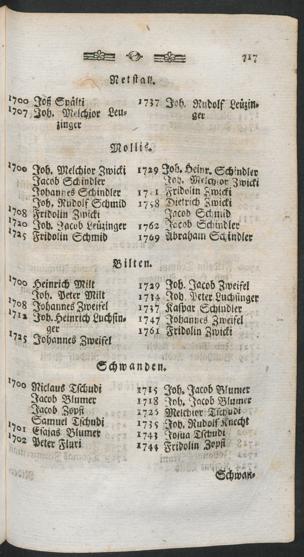 717
Netstall.
1700 Joß Spälti
1707 Joh. Melchior Leu-
zinger
1737 Joh. Rudolf Leüzin-
ger
Mollis.
1700 Joh. Melchior Zwicki
Jacob Schindler
Johannes Schindler
Joh. Rudolf Schmid
1708 Fridolin Zwicki
1720 Joh. Jacob Leüzinger
1725 Fridolin Schmid
1729 Joh. Heinr. Schindler
Joh. Melchior Zwicki
Fridolin Zwicki
1758 Dietrich Zwicki
Jacob Schmid
1762 Jacob Schindler
1769 Abraham Schindler
Bilten.
1700 Heinrich Milt
Joh. Peter Milt
1708 Johannes Zweifel
1712 Joh. Heinrich Luchsin-
ger
1725 Johannes Zweifel
1729 Joh. Jacob Zweifel
Joh. Peter Luchsinger
1737 Kaspar Schindler
1747 Johannes Zweifel
1761 Fridolin Zwicki
Schwanden.
1700 Niclaus Tschudi
Jacob Blumer
Jacob Zopfi
Samuel Tschudi
1701 Esajas Blumer
1702 Peter Fluri
1715 Joh. Jacob Blumer
1718 Joh. Jacob Blumer
1726 Melchior Tschudi
1735 Joh. Rudolf Knecht
1743 Josua Tschudi
1744 Fridolin Zopfi
Schwan-